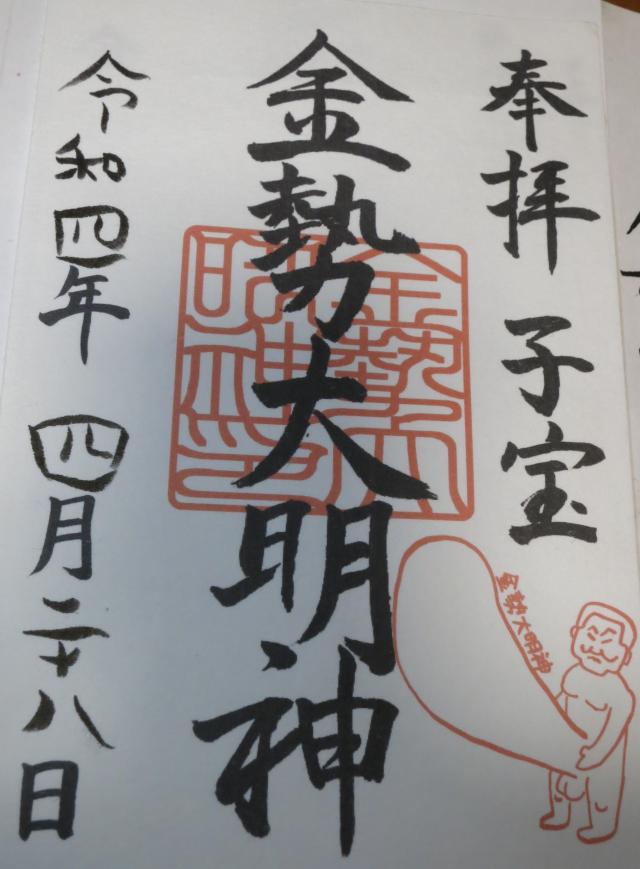 奉拝 子宝
金勢大明神
金勢大明神
令和四年 四月二十八日